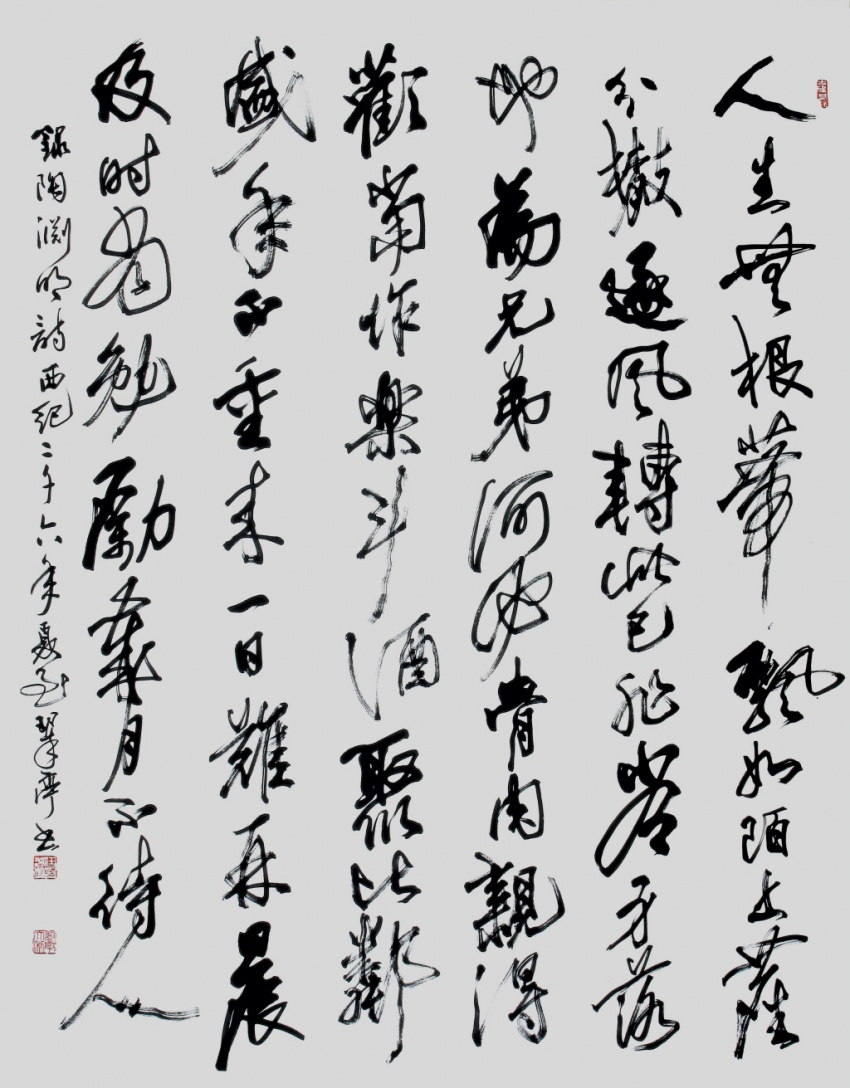 人生無根蒂飄如陌上塵
分散逐風轉此已非常身落
地為兄弟何必骨肉親得
歡當作樂斗酒聚比鄰
盛年不重來一日難再晨
及時當勉勵歲月不待人
録陶淵明詩西紀二千六年夏